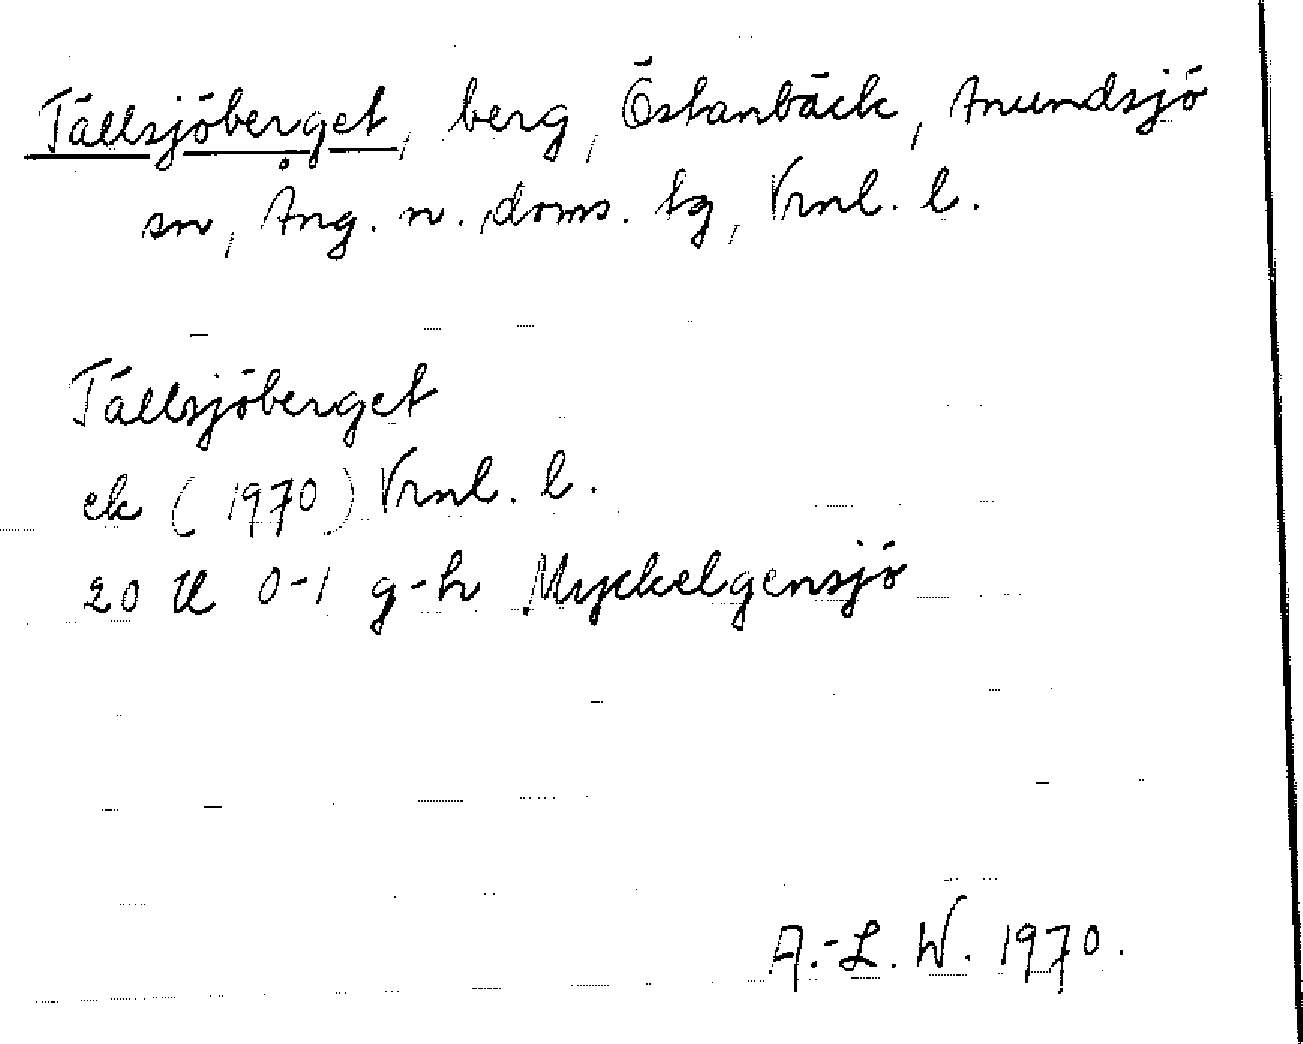 Tällsjöberget, berg, Östanbäck, Anundsjö
sn, Ång. n. doms. tg, Vrnl. l.
Tällsjöberget
ek (1970) Vrnl. l.
20 H 0-1 g-h Myckelgensjö
A.-L. W. 1970.